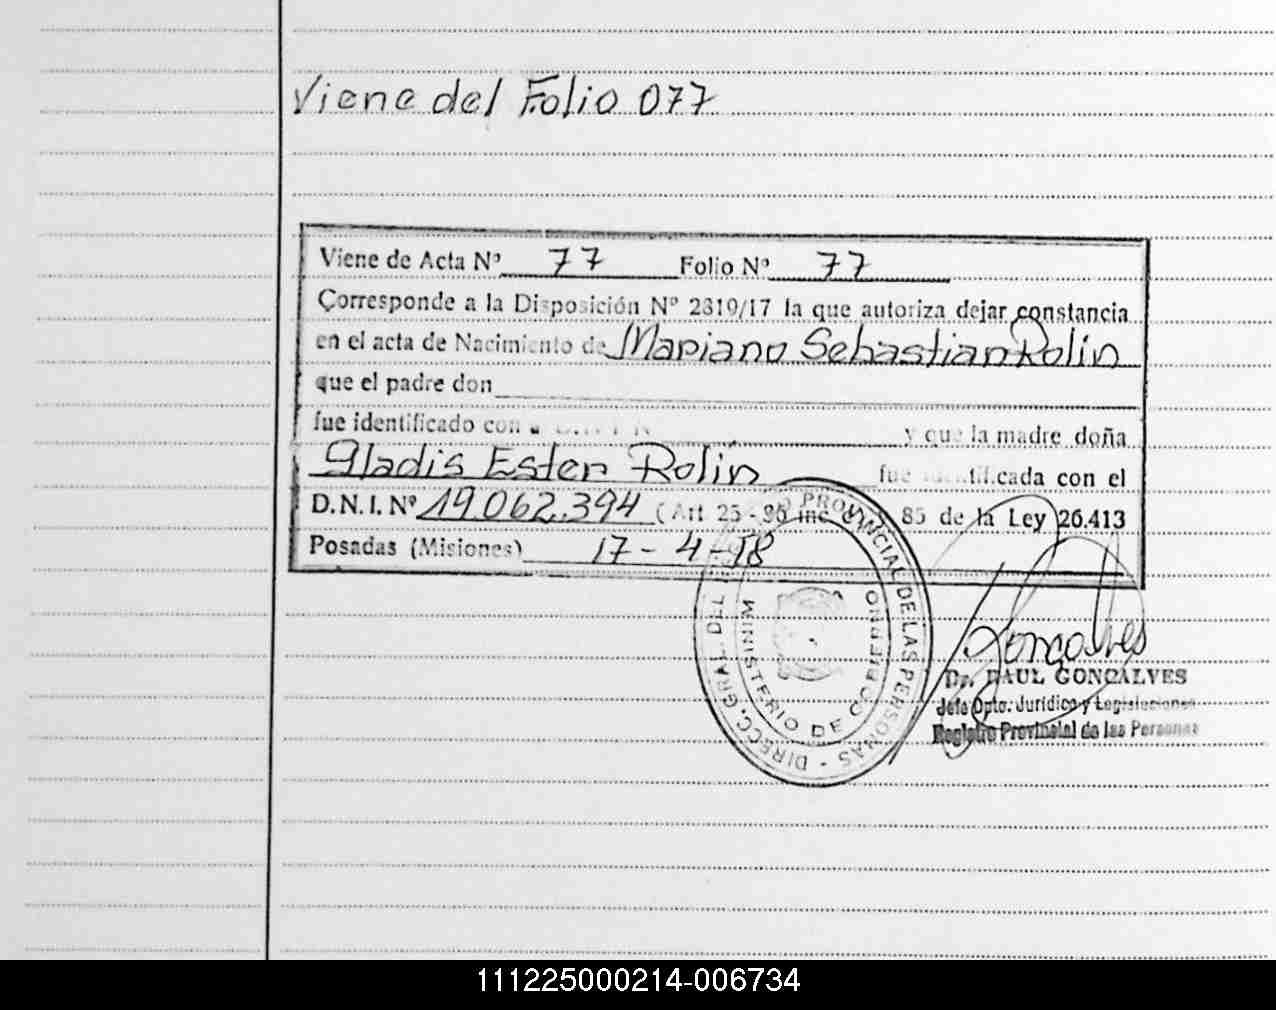 Viene del Folio 077
Viene de Acta Nº 77 Folio Nº 77
Corresponde a la Disposición Nº 2319/17 la que autoriza dejar constancia
en el acta de Nacimiento de Mariano Sebastian Rolin
que el padre don
fue identificado con y que la madre doña
Gladis Ester Rolin fue identificada con el
D.N.I. Nº 19.062.394 (Art 25 - 36 inc 85 de la Ley 26.413
Posadas (Misiones) 17 - 4 - 18
DIRECC. GRAL. DEL PROVINCIAL DE LAS PERSONAS
MINISTERIO DE GOBIERNO
Goncalves
Dr. RAUL GONCALVES
Jefe Dpto. Jurídico y Legislaciones
Registro Provincial de las Personas
111225000214-006734